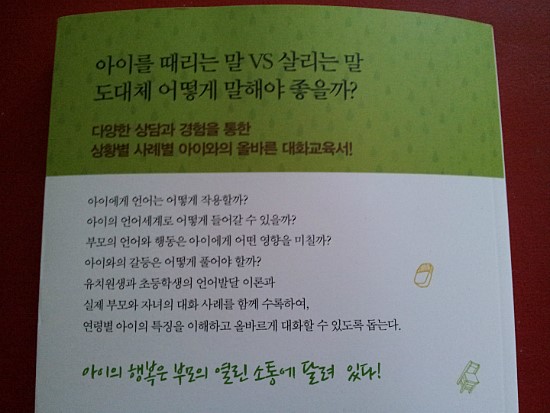 아이를 때리는 말 VS 살리는 말
도대체 어떻게 말해야 좋을까?
다양한 상담과 경험을 통한
상황별 사례별 아이와의 올바른 대화교육서!
아이에게 언어는 어떻게 작용할까?
아이의 언어세계로 어떻게 들어갈 수 있을까?
부모의 언어와 행동은 아이에게 어떤 영향을 미칠까?
아이와의 갈등은 어떻게 풀어야 할까?
유치원생과 초등학생의 언어발달 이론과
실제 부모와 자녀의 대화 사례를 함께 수록하여,
연령별 아이의 특징을 이해하고 올바르게 대화할 수 있도록 돕는다.
아이의 행복은 부모의 열린 소통에 달려 있다!